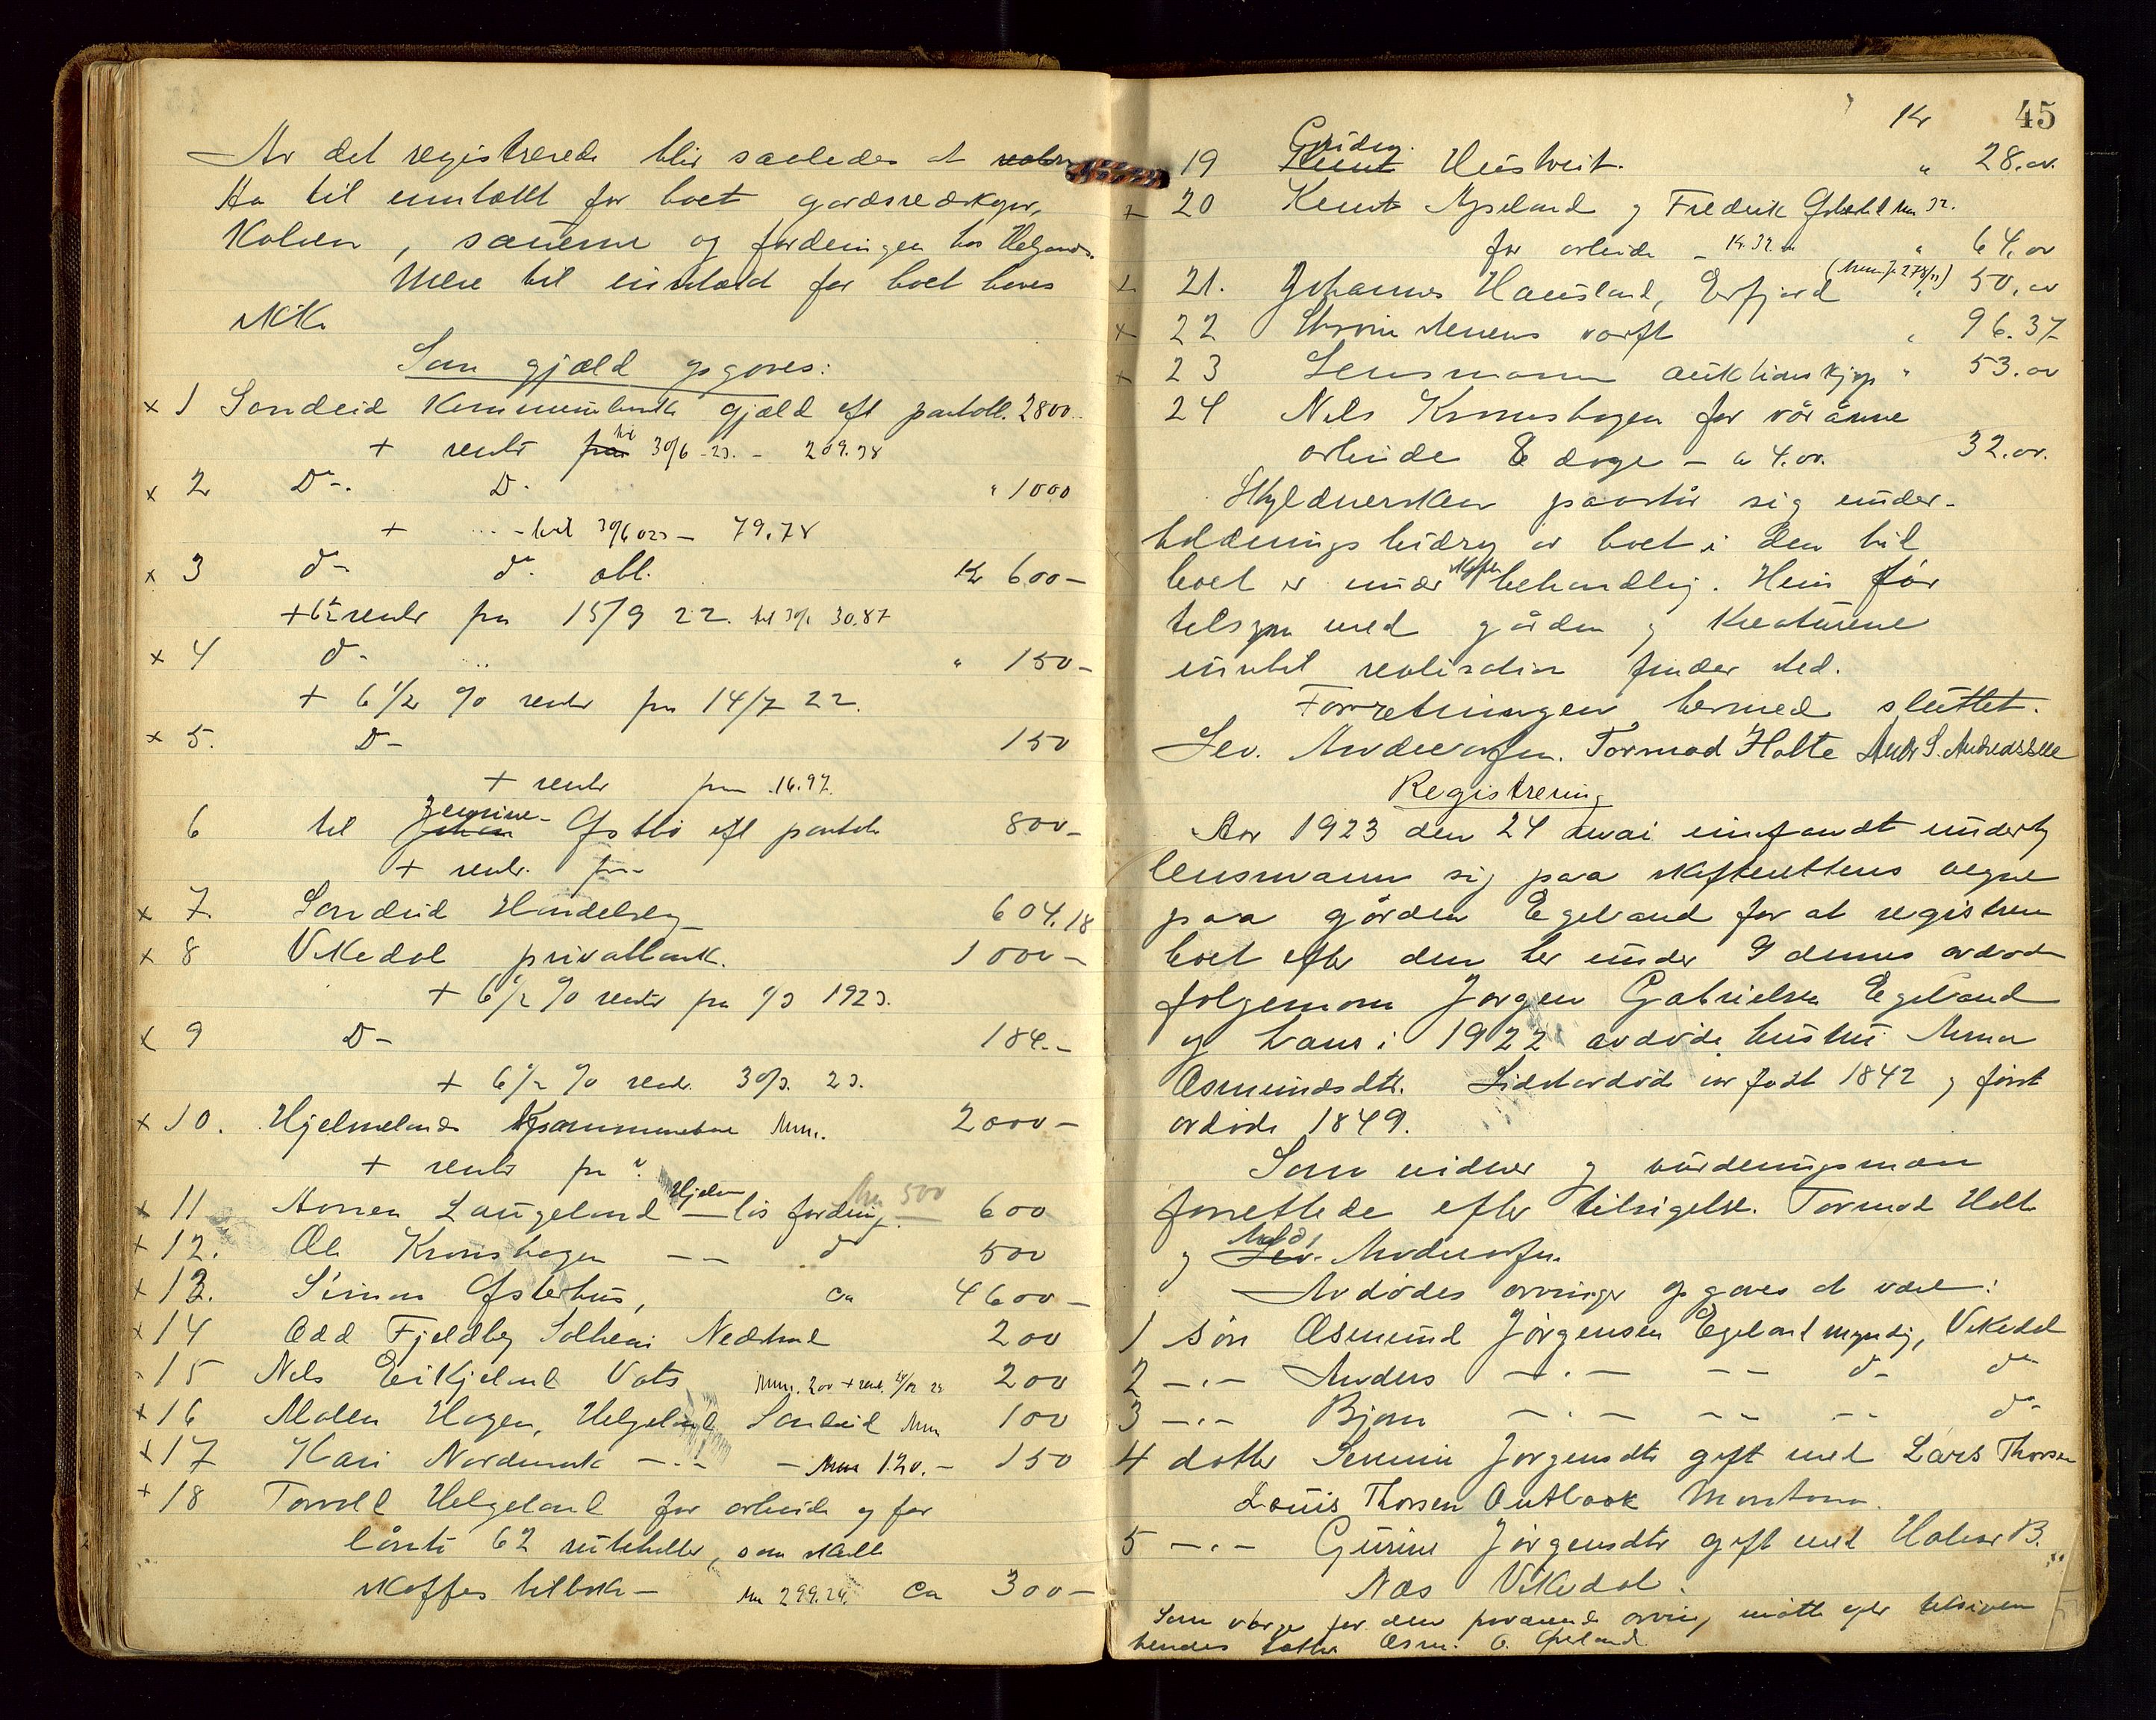 Av det registrerede blir saaledes at
ta til inntækt for boet gardsredskaper,
Kalven, sauerne og fordringen hos Helgeands.
Mere til inntæld for boet haves
ikke
Som gjæld opgaves:
x 1 Sandeid Kommunebank gjæld eft pantobl. 2800..
+ renter fra til 30/6 - 23. - 209.38
x 2 Do-. Do. " 1000
+ ... - til 30/6 023 - 79.78
x 3 do- do. obl. Kr 600 -
+ 6½ renter fra 15/9 22. til 30/6 30.87
x 4 do- ... " 150 -
+ 6 1/2 % renter fra 14/7 22.
x 5. Do- 150
+ renter fra .16.97.
6 til Ofstbø eft pantobl 800 -
+ renter. fra -
x 7. Sandeid Handelslag 604.18
x 8 Vikedal privatbank. 1000 -
+ 6 1/2 % renter fra 1923.
x 9 Do- 184. -
+ 6 1/2 % rent. 30/3. 23.
x 10. Hjelmelands Spare Mm. 2000 -
+ renter fra
x 11 Langeland Hjelm - løs fordring. Mm 500 600
+ 12. Ole Kronshagen - - do 500
+ 13. Simon Ofsterhus, ca 4600 -
x 14 Odd Fjeldby Solheim Nedstrand 200
15 Nels Eikjeland Vats Mm. 200 + rent. 200
x 16 Malen Hagen, Helgeland Sandeid Mm 100
x 17 Kari Nordmark - . - - Mm 120. - 150
+ 18 Torvald Helgeland for arbeide og for
lånte 62 , som skulle
skaffes tilbake - Mm 299.24. ca 300 -
45
Kr
19 Knut Hustveit. " 28.00
+ 20 Knut Apeland og Fredrik
for arbeide - Kr. 32.00 " 64.00
x 21. Johannes Hausland, Erfjord " 50.00
x 22 Menens 96.37
x 23 Lensmann auktionskjøp " 53.00
24 Nels Kronshagen for våronne
arbeide 8 dage - a 4.00. 32.00.
Skyldnersken paastår sig under-
holdnings bidrag av boet i den tid
boet er under behandling. Hun får
tilsyn med gården og Kreaturene
inntil realisation finder sted.
Forretningen hermed sluttet.
Sev. Andersen. Tormod Holte Andr S. Andreassen
Registrering
Aar 1923 den 24 mai innfandt underteg
lensmann sig paa skifterettens vegne
paa gården Egeland for at registrere
boet efter den her under 9 dennes avdøde
folgemann Jørgen Gabrielsen Egeland
og hans i 1922 avdøde hustru Anna
Asmundsdtr. Sidstavdød var født 1842 og først
avdøde 1849.
Som vidner og vurderingsmæn
forrettede efter tilsigelse. Tormod Holte
og Sev. Andersen.
Avdødes arvinger opgaves at være:
1 søn Asmund Jørgensen Egeland myndig, Vikedal
2 - . - Anders - . - - - do- do
3 - . - Bjørn - . - - - - - do-
4 datter Semine Jørgensdtr gift med Lars Thorsen
Louis Thorsen Outlook Montana.
5 - . - Gurine Jørgensdtr gift med Halvor B.
Næs Vikedal.
Som værge for den fraværende arving møtte efter tilsigelse
hendes Asm. O. Opeland